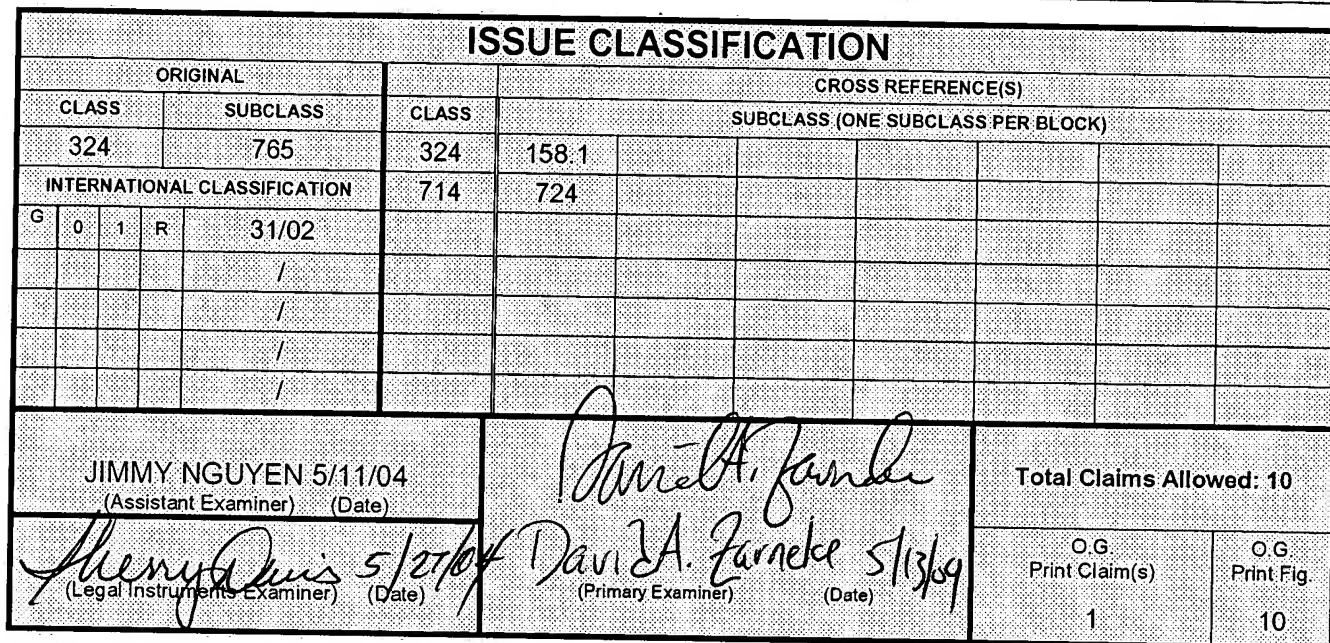 ISSUE CLASSIFICATION
ORIGINAL CROSS REFERENCE(S)
CLASS SUBCLASS CLASS SUBCLASS (ONE SUBCLASS PER BLOCK)
324 765 324 158.1
INTERNATIONAL CLASSIFICATION 714 724
G 0 1 R 31/02
/
/
/
/
JIMMY NGUYEN 5/11/04
(Assistant Examiner) (Date)
Sherry Davis 5/27/04
(Legal Instruments Examiner) (Date)
David A. Zarneke
David A. Zarneke 5/13/04
(Primary Examiner) (Date)
Total Claims Allowed: 10
O.G. Print Claim(s)
1
O.G. Print Fig.
10